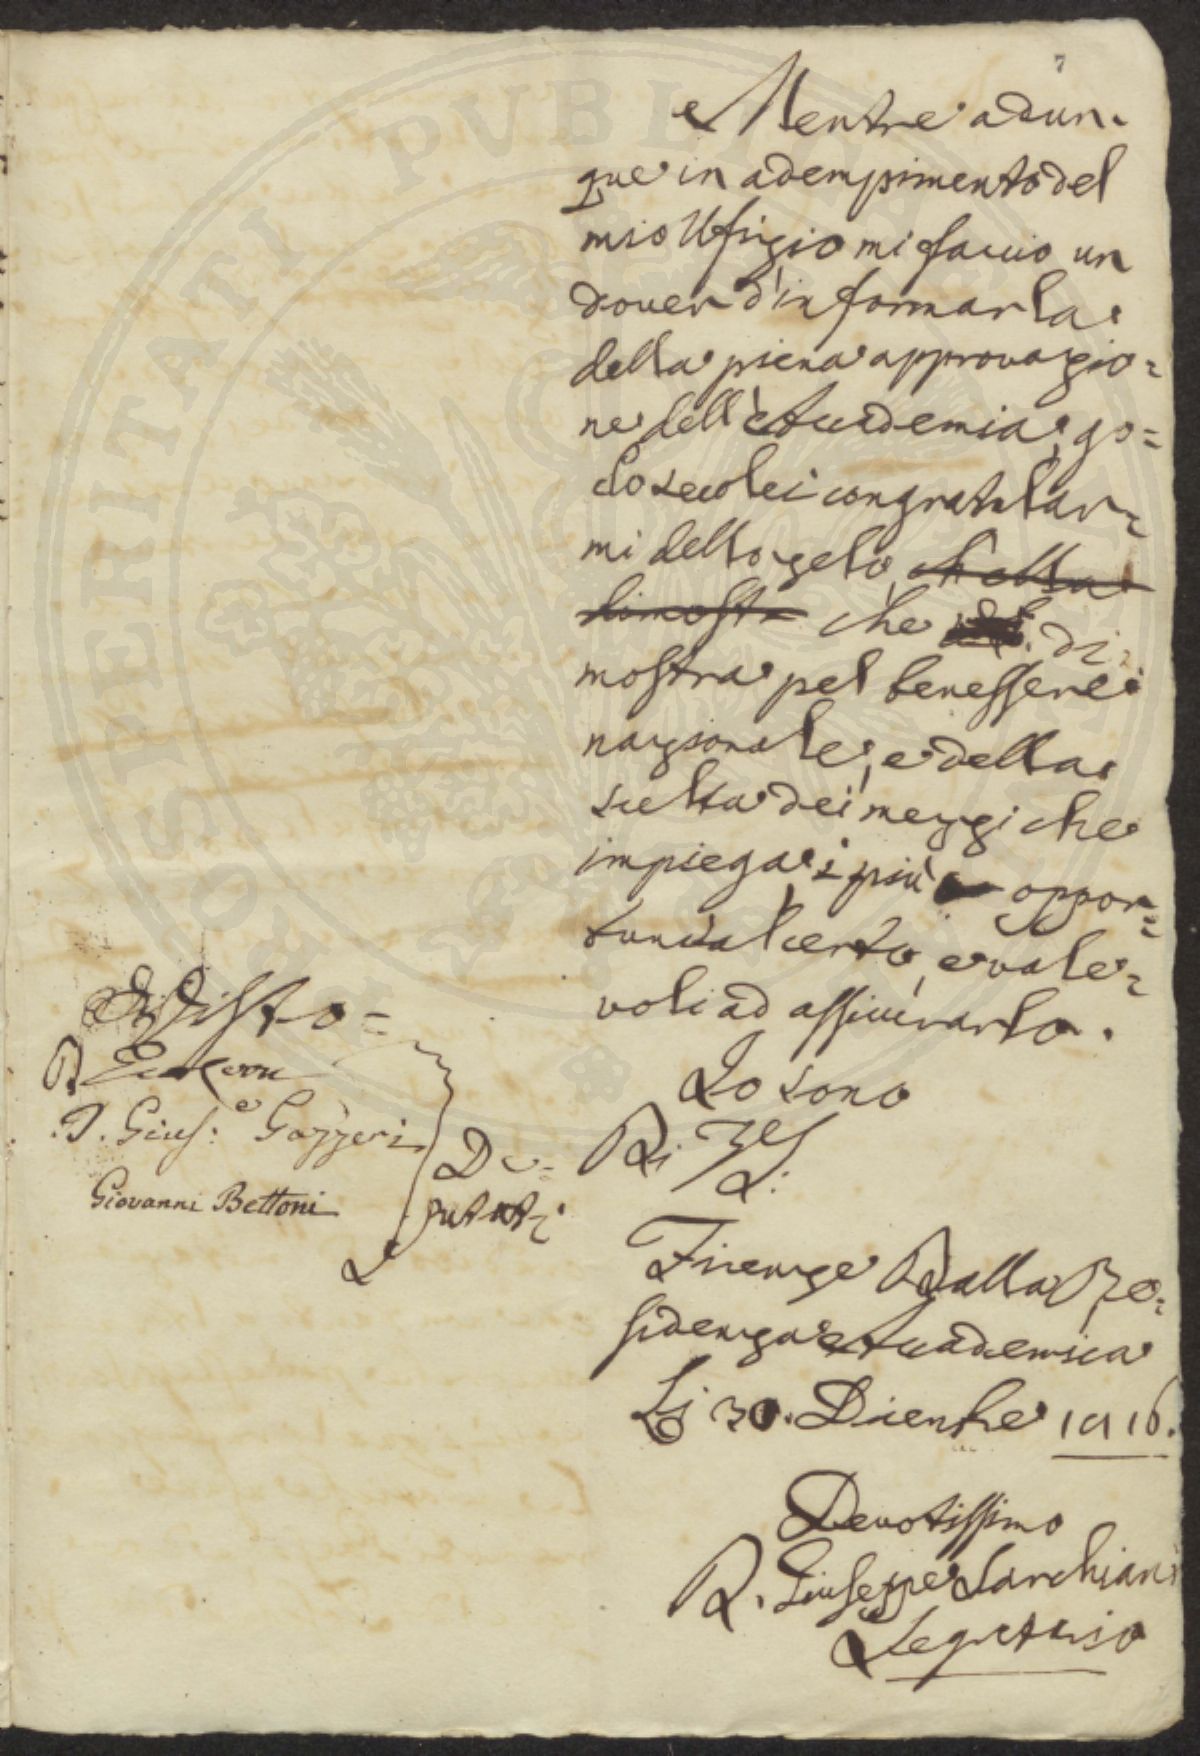 7
Mentre adun-
que in adempimento del
mio Ufizio mi faccio un
dover d'informarla
della piena approvazio=
ne dell'Accademia, go=
do seco lei congratular=
mi dello zelo, ch'ella
dimostr che di=
mostra pel benessere
nazionale, e della
scelta dei mezzi che
impiega i più oppor=
tuni al certo, e vale=
voli ad assicurarlo.
Io sono
Firenze Dalla Re=
sidenza Accademica
Li 30. Dicembre 1816.
Devotissimo
D. Giuseppe Sarchiani
Segretario
Visto =
P. Giuse: Gazzeri
Giovanni Bettoni
De=
putati
PROSPERITATI PUBLICAE